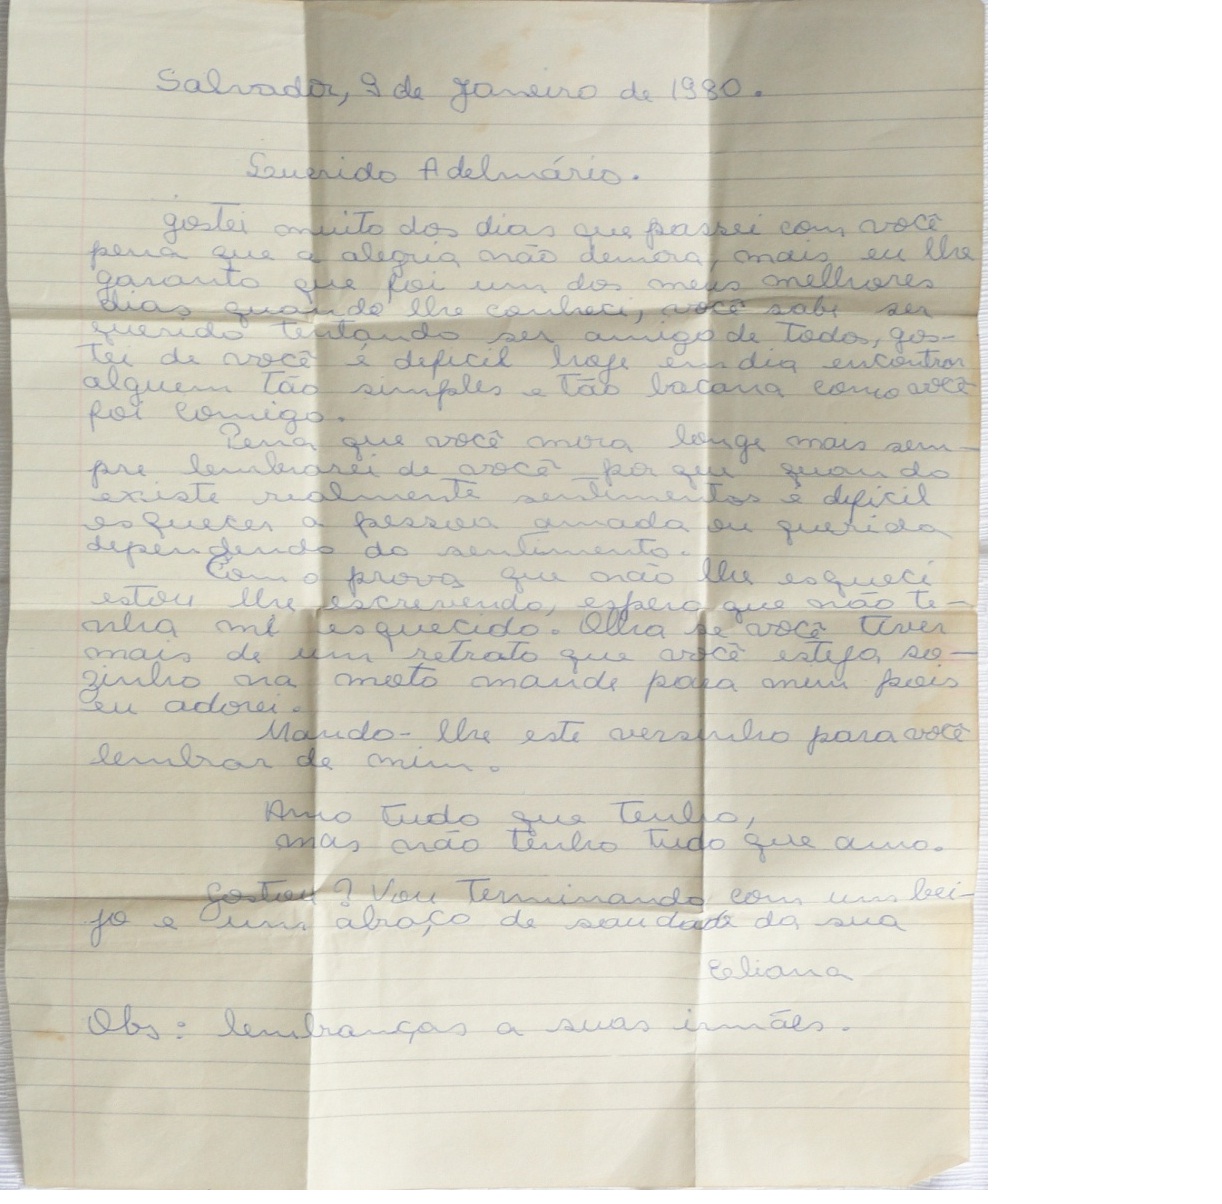 Salvador, 9 de Janeiro de 1980.
Querido Adelmário.
gostei muito dos dias que passei com você
pena que a alegria não demora, mais eu lhe
garanto que foi um dos meus melhores
dias quando lhe conheci, você sabe ser
querido tentando ser amigo de todos, gos-
tei de você é deficil hoje em dia encontrar
alguem tão simples e tão bacana como você
foi comigo.
Pena que você mora longe mais sem-
pre lembrarei de você por que quando
existe realmente sentimentos é deficil
esquecer a pessoa amada ou querida
dependendo do sentimento.
Como prova que não lhe esqueci
estou lhe escrevendo, espero que não te-
nha me esquecido. Olha se você tiver
mais de um retrato que você esteja so-
zinho na moto mande para mim pois
eu adorei.
Mando-lhe este versinho para você
lembrar de mim.
Amo tudo que tenho,
mas não tenho tudo que amo.
Gostou? Vou terminando com um bei-
jo e um abraço de saudade da sua
Eliana
Obs: lembranças a suas irmães.